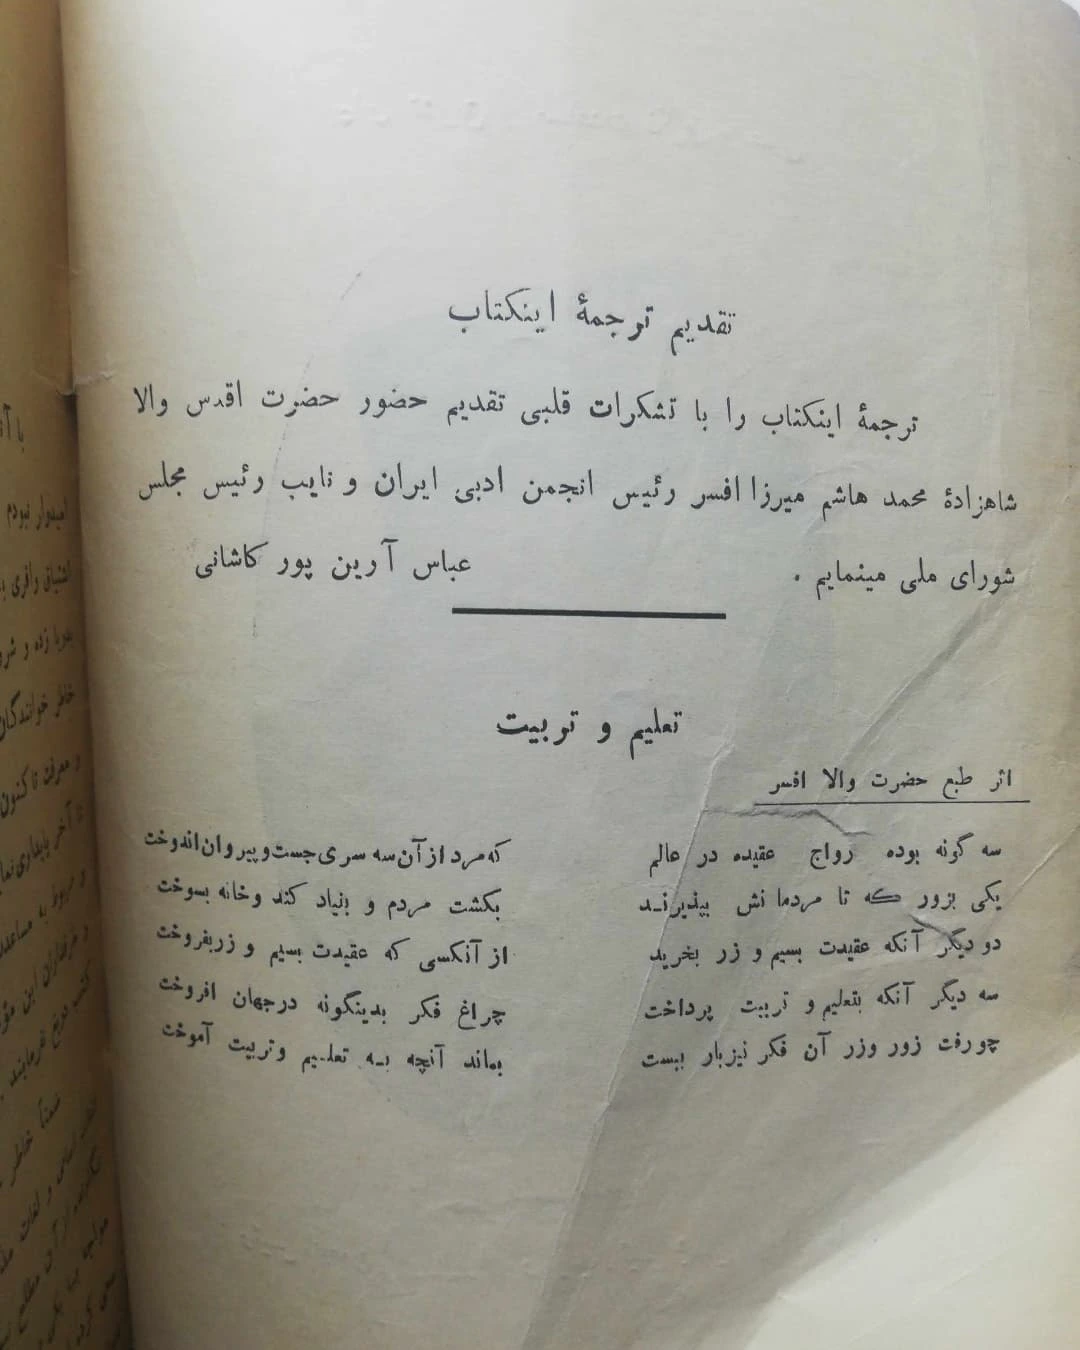 تقدیم ترجمهٔ اینکتاب
ترجمهٔ اینکتاب را با تشکرات قلبی تقدیم حضور حضرت اقدس والا
شاهزادهٔ محمد هاشم میرزا افسر رئیس انجمن ادبی ایران و نایب رئیس مجلس
شورای ملی مینمایم . عباس آرین پور کاشانی
تعلیم و تربیت
اثر طبع حضرت والا افسر
سه گونه بوده رواج عقیده در عالم که مرد از آن سه سری جست و پیروان اندوخت
یکی بزور که تا مردمانش بپذیرند بکشت مردم و بنیاد کند و خانه بسوخت
دو دیگر آنکه عقیدت بسیم و زر بخرید از آنکسی که عقیدت بسیم و زر بفروخت
سه دیگر آنکه بتعلیم و تربیت پرداخت چراغ فکر بدینگونه در جهان افروخت
چو رفت زور و زر آن فکر نیز بار ببست بماند آنچه به تعلیم و تربیت آموخت
با
امیدوار نبودم
اشتیاق وافری
زده و
خاطر خوانندگان
و معرفت تا کنون
تا آخر پایداری
و مربوط به
و طرفداران این